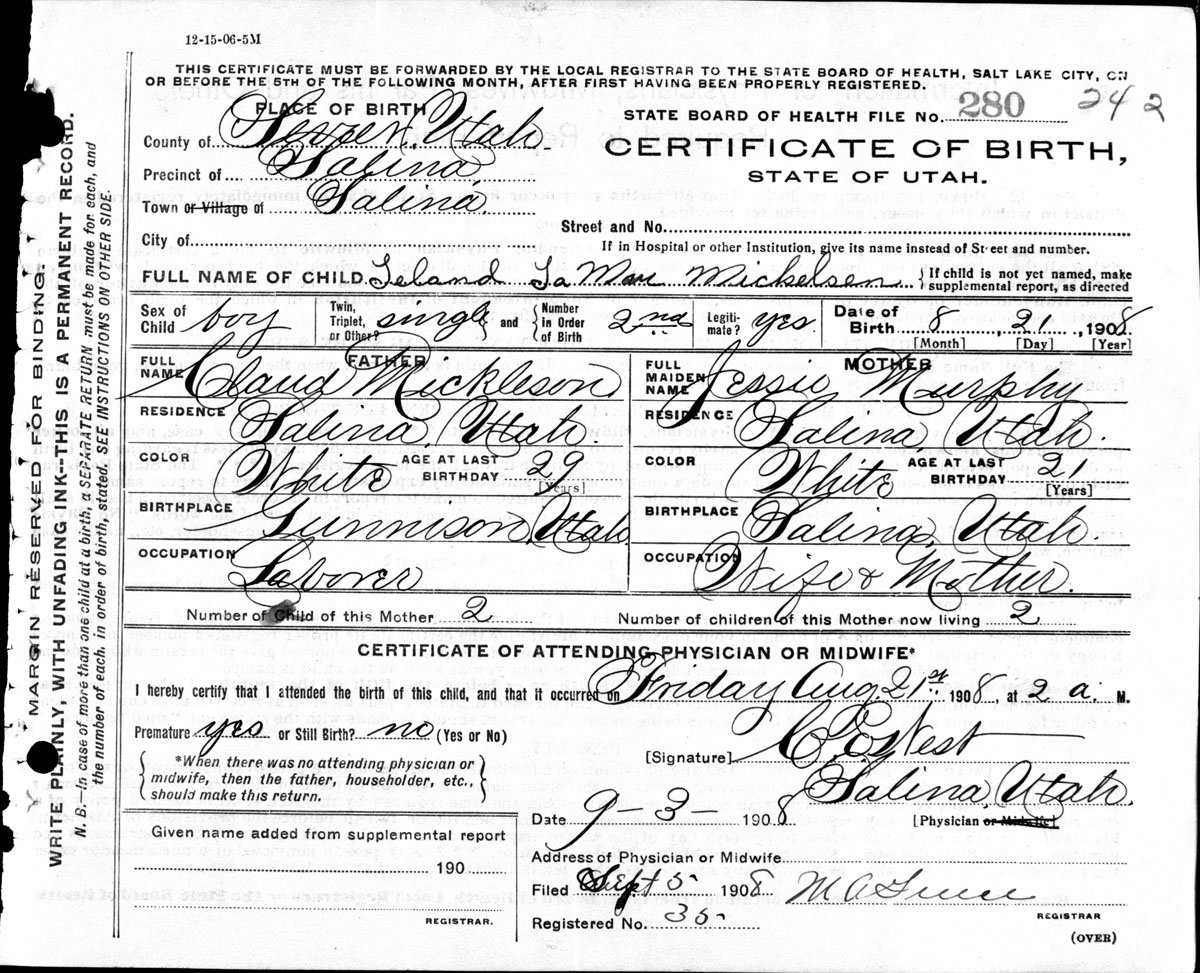 12-15-06-5M
THIS CERTIFICATE MUST BE FORWARDED BY THE LOCAL REGISTRAR TO THE STATE BOARD OF HEALTH, SALT LAKE CITY, ON
OR BEFORE THE 5TH OF THE FOLLOWING MONTH, AFTER FIRST HAVING BEEN PROPERLY REGISTERED.
PLACE OF BIRTH
STATE BOARD OF HEALTH FILE No. 280 242
County of Sevier, Utah
CERTIFICATE OF BIRTH,
Precinct of Salina,
STATE OF UTAH.
Town or Village of Salina.
Street and No.
City of
If in Hospital or other Institution, give its name instead of Street and number.
FULL NAME OF CHILD Leland La Mar Mickelsen { If child is not yet named, make supplemental report, as directed
Sex of Child boy Twin, Triplet, or Other? single and { Number in Order of Birth 2nd Legiti-mate? yes Date of Birth 8, 21, 1908
[Month] [Day] [Year]
FATHER MOTHER
FULL NAME Claud Mickleson FULL MAIDEN NAME Jessie Murphy
RESIDENCE Salina, Utah. RESIDENCE Salina, Utah.
COLOR White AGE AT LAST BIRTHDAY 29 [Years] COLOR White AGE AT LAST BIRTHDAY [Years]
BIRTHPLACE Gunnison, Utah BIRTHPLACE Salina, Utah
OCCUPATION Laborer OCCUPATION Wife & Mother.
Number of Child of this Mother 2 Number of children of this Mother now living 2
CERTIFICATE OF ATTENDING PHYSICIAN OR MIDWIFE*
I hereby certify that I attended the birth of this child, and that it occurred on Friday Aug. 21st 1908, at 2 a. M.
Premature yes or Still Birth? no (Yes or No)
[Signature] West
*When there was no attending physician or
midwife, then the father, householder, etc.,
should make this return.
Salina, Utah.
Date 9-3-1908 [Physician or Midwife]
Given name added from supplemental report
190
Address of Physician or Midwife
Filed Sept 5 1908
REGISTRAR.
REGISTRAR
Registered No. 35
(OVER)
MARGIN RESERVED FOR BINDING.
WRITE PLAINLY, WITH UNFADING INK--THIS IS A PERMANENT RECORD.
N. B.--In case of more than one child at a birth, a SEPARATE RETURN must be made for each, and
the number of each, in order of birth, stated. SEE INSTRUCTIONS ON OTHER SIDE.